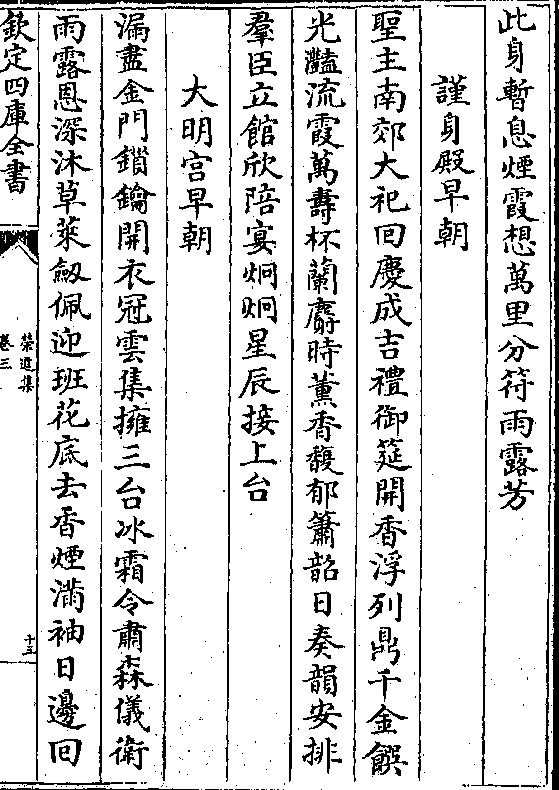 此身暫息煙霞想萬里分符雨露芳
謹身殿早朝
聖主南郊大祀回慶成吉禮御筵開香浮列鼎千金饌
光灎流霞萬壽杯蘭麝時薰香馥郁簫韶日奏韻安排
羣臣立館欣陪宴炯炯星辰接上台
大明宮早朝
漏盡金門鎖鑰開衣冠雲集擁三台冰霜令肅森儀衛
雨露恩深沐草萊劒佩迎班花底去香煙滿袖日邊回
欽定四庫全書
榮進集
卷三
十三